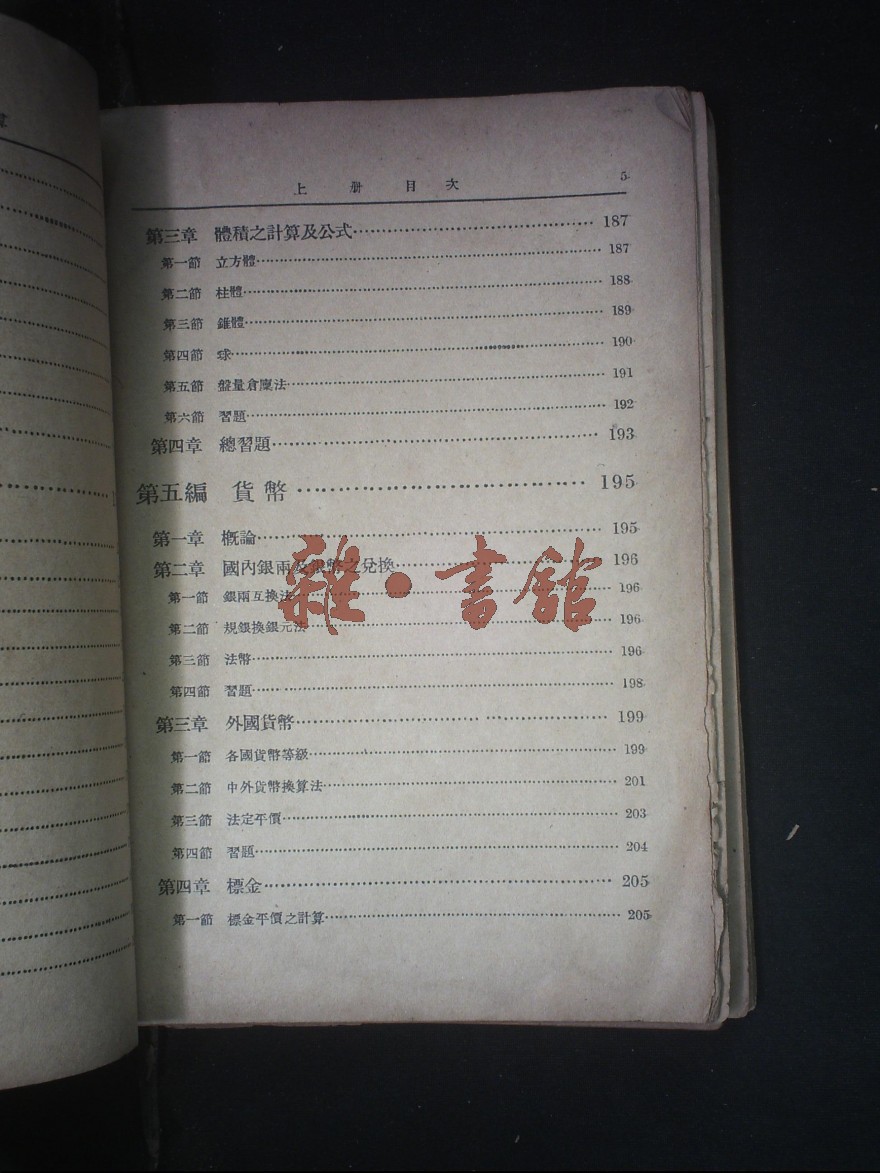 算
上册目次 5
第三章 體積之計算及公式 187
第一節 立方體 187
第二節 柱體 188
第三節 錐體 189
第四節 球 190
第五節 盤量倉廒法 191
第六節 習題 192
第四章 總習題 193
第五編 貨幣 195
第一章 概論 195
第二章 國內銀兩及銀幣之兌換 196
第一節 銀兩互換法 196
第二節 規銀換銀元法 196
第三節 法幣 196
第四節 習題 198
第三章 外國貨幣 199
第一節 各國貨幣等級 199
第二節 中外貨幣換算法 201
第三節 法定平價 203
第四節 習題 204
第四章 標金 205
第一節 標金平價之計算 205
雜·書館